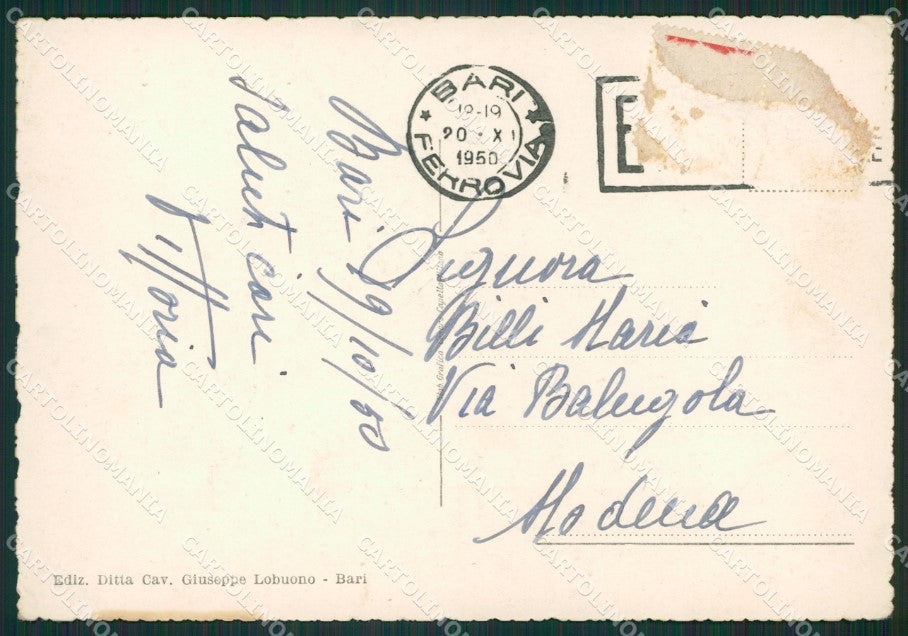 Bari 19/10/50
Saluti cari
Vittoria
BARI
18-19
20 · X
1950
FERROVIA
Signora
Billi Maria
Via Balugola
Modena
Ediz. Ditta Cav. Giuseppe Lobuono - Bari
CARTOLINOMANIA